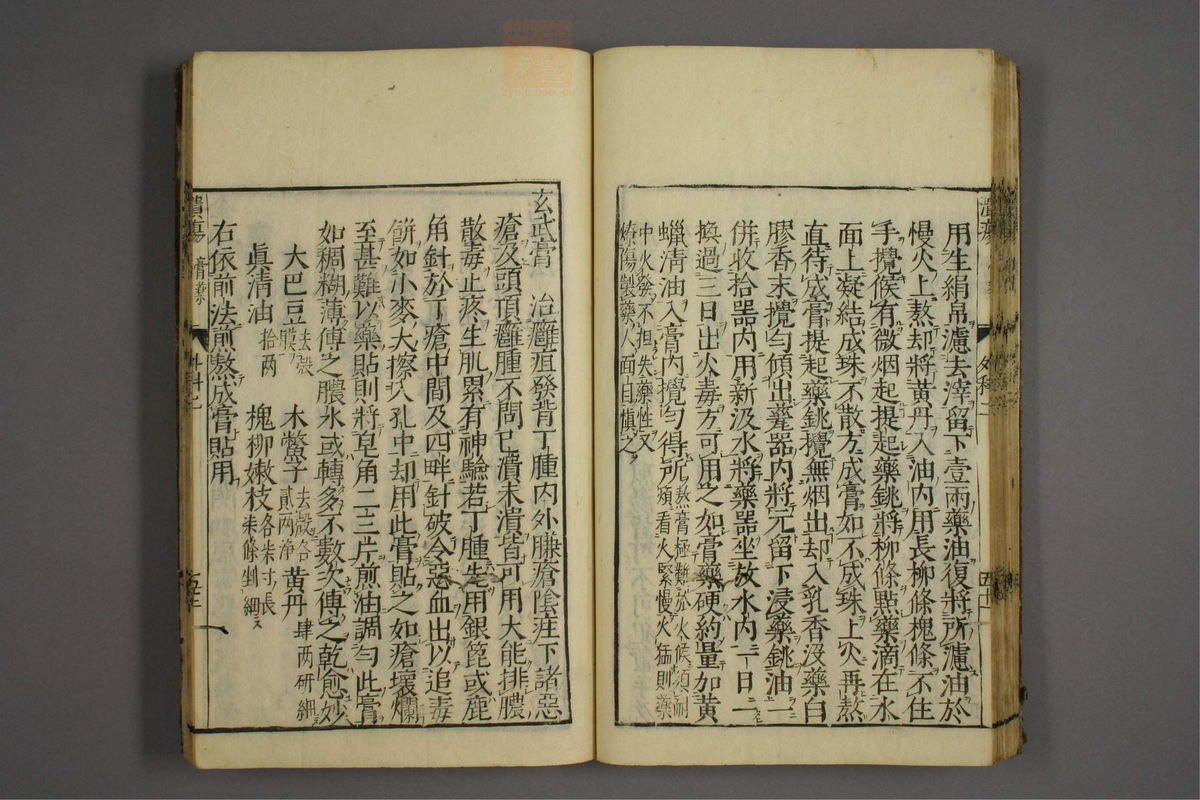 用生絹帛濾去滓留下壹兩藥油復將所濾油於
慢火上熬却將黃丹入油內用長柳條槐條不住
手攪候有微烟起提起藥銚將柳條㸃藥滴在水
面上凝結成珠不散方成膏如不成珠上火再熬
直待成膏提起藥銚攪無烟出却入乳香沒藥白
膠香末攪勻傾出甆器內將元留下浸藥銚油一
併收拾器內用新汲水將藥器坐放水內一日一
換過三日出火毒方可用之如膏藥硬約量加黃
蠟淸油入膏內攪勻得所熬膏極難於火候須耐煩看火緊慢火猛則藥
中火發不担失藥性又燎傷製藥人面目愼之
外科七
玄武膏 治癰疽發背丁腫內外臁瘡陰疰下諸惡
瘡及頭頂癰腫不問已潰未潰皆可用大能排膿
散毒止疼生肌累有神驗若丁腫先用銀篦或鹿
角針於丁瘡中間及四畔針破令惡血出以追毒
餅如小麥大擦入孔中却用此膏貼之如瘡壞爛
至甚難以藥貼則將皂角二三片煎油調勻此膏
如稠糊薄傅之膿水或轉多不數次傅之乾愈妙
大巴豆去殼膜 木鱉子去殼各貳兩淨 黃丹肆兩研細
眞淸油拾兩 槐柳嫩枝各柒寸長柒條剉細
右依前法煎熬成膏貼用
潰瘍 膏藥
外科七